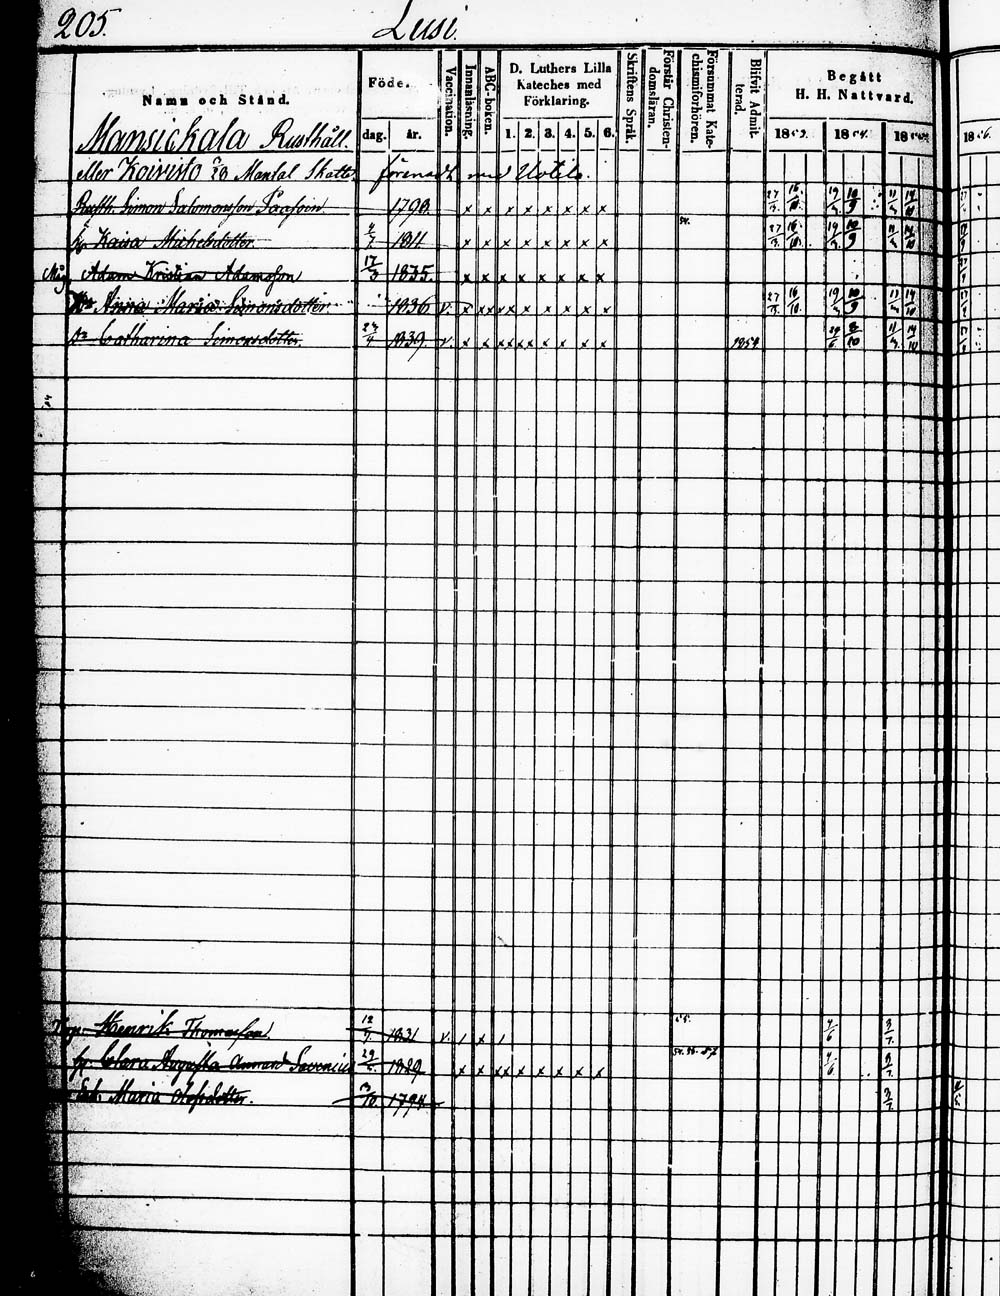 205. Lusi.
Namn och Stånd. Föde. Vaccination. Innanläsning. ABC-boken. D. Luthers Lilla Kateches med Förklaring. Skriftens Språk. Förstår Christendomsläran. Försummat Katechismiförhören. Blifvit Admitterad. Begått H. H. Nattvard.
dag. år. 1. 2. 3. 4. 5. 6. 1853. 1854. 1855. 1856.
Mansickala Rusthåll.
eller Koivisto Mantal Skatte förenadt med Uotila.
Rusth. Simon Salomonsson 1790. x x x x x x x x 27/3 16/10 19/3 10/9 11/3 14/10
h. Kaisa Michelsdotter 4/7 1811 x x x x x x x x 54. 27/3 16/10 19/3 10/9 11/3 14/10
Måg Adam Kristian Adamsson 17/3 1835. x x x x x x x x
Anna Maria Simonsdotter 1836 v. x xx xx x x x x x 27/3 16/10 19/3 10/9 11/3 14/10
Dr Catharina Simonsdotter 24/4 1839. v. x x xx xx x x x x 1854 29/6 8/10 11/3 14/10
Henrik Thomasson 12/7 1831 v. 55. 4/6 3/7
h. Clara Augusta Savenius 29/ 1829 x x xx x x x x x 54. 56. 57 4/6 3/7
Enk. Maria Olofsdotter. 13/10 1794 3/7